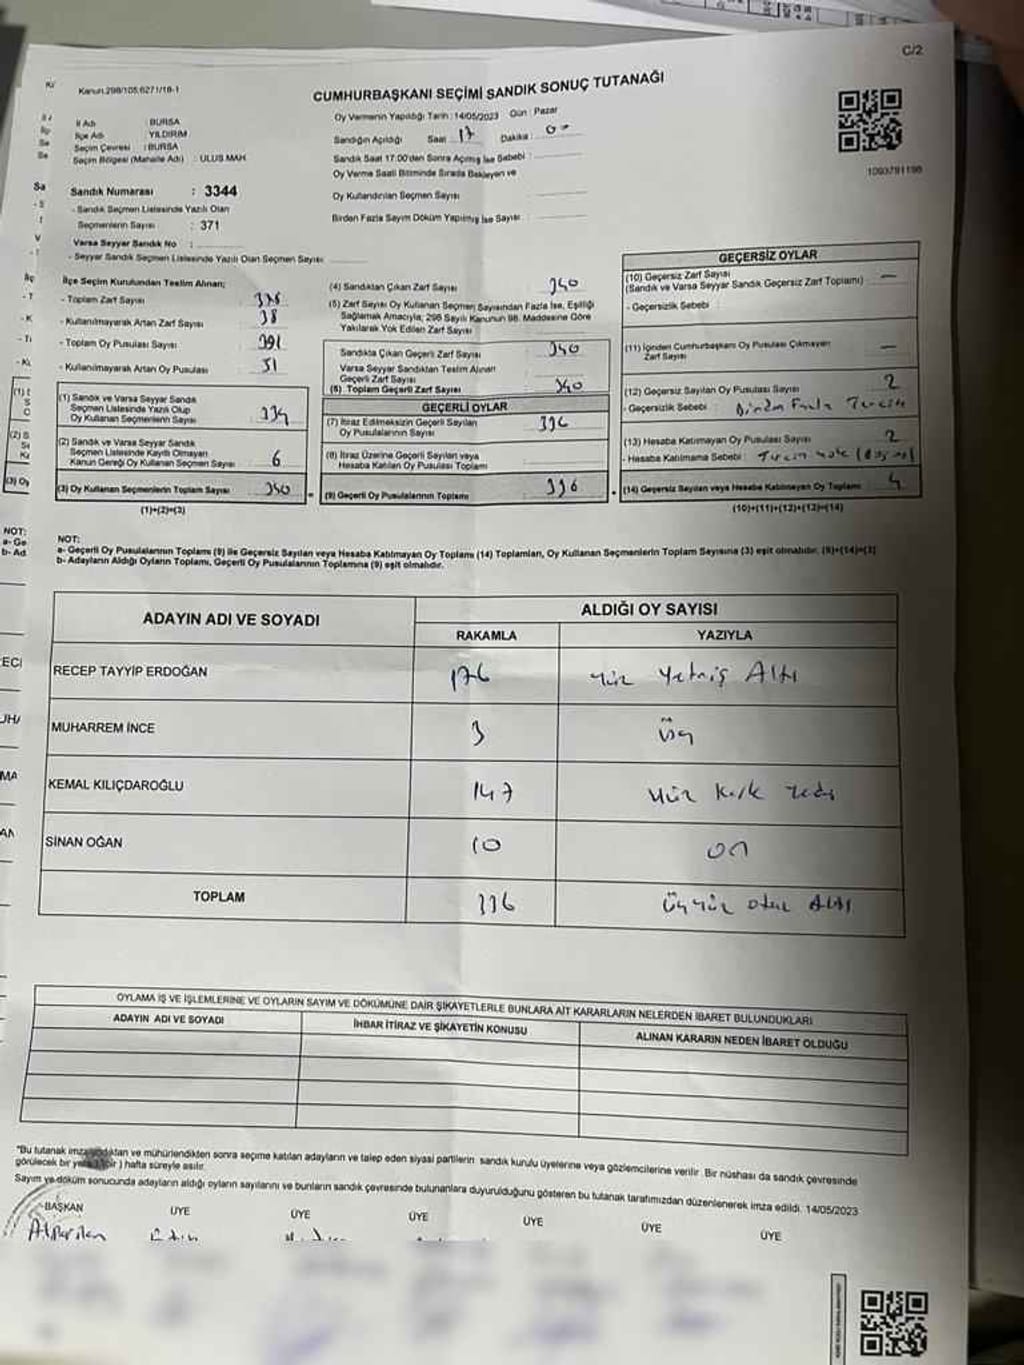 C/2
Kanun:298/105;6271/18-1
CUMHURBAŞKANI SEÇİMİ SANDIK SONUÇ TUTANAĞI
İl Adı : BURSA
İlçe Adı : YILDIRIM
Seçim Çevresi : BURSA
Seçim Bölgesi (Mahalle Adı) : ULUS MAH.
Oy Vermenin Yapıldığı Tarih : 14/05/2023 Gün : Pazar
Sandığın Açıldığı Saat : 17 Dakika : 00
Sandık Saat 17:00'den Sonra Açılmış İse Sebebi :
Oy Verme Saati Bitiminde Sırada Bekleyen ve
Oy Kullandırılan Seçmen Sayısı
Birden Fazla Sayım Döküm Yapılmış İse Sayısı :
1093791198
Sandık Numarası : 3344
- Sandık Seçmen Listesinde Yazılı Olan
Seçmenlerin Sayısı : 371
Varsa Seyyar Sandık No :
- Seyyar Sandık Seçmen Listesinde Yazılı Olan Seçmen Sayısı
İlçe Seçim Kurulundan Teslim Alınan;
- Toplam Zarf Sayısı
- Kullanılmayarak Artan Zarf Sayısı 38
- Toplam Oy Pusulası Sayısı 391
- Kullanılmayarak Artan Oy Pusulası 51
(1) Sandık ve Varsa Seyyar Sandık
Seçmen Listesinde Yazılı Olup
Oy Kullanan Seçmenlerin Sayısı 334
(2) Sandık ve Varsa Seyyar Sandık
Seçmen Listesinde Kayıtlı Olmayan
Kanun Gereği Oy Kullanan Seçmen Sayısı 6
(3) Oy Kullanan Seçmenlerin Toplam Sayısı 340
(1)+(2)=(3)
(4) Sandıktan Çıkan Zarf Sayısı 340
(5) Zarf Sayısı Oy Kullanan Seçmen Sayısından Fazla İse, Eşitliği
Sağlamak Amacıyla; 298 Sayılı Kanunun 98. Maddesine Göre
Yakılarak Yok Edilen Zarf Sayısı
Sandıkta Çıkan Geçerli Zarf Sayısı 340
Varsa Seyyar Sandıktan Teslim Alınan
Geçerli Zarf Sayısı
(6) Toplam Geçerli Zarf Sayısı 340
GEÇERLİ OYLAR
(7) İtiraz Edilmeksizin Geçerli Sayılan
Oy Pusulalarının Sayısı 336
(8) İtiraz Üzerine Geçerli Sayılan veya
Hesaba Katılan Oy Pusulası Toplamı
(9) Geçerli Oy Pusulalarının Toplamı 336
GEÇERSİZ OYLAR
(10) Geçersiz Zarf Sayısı
(Sandık ve Varsa Seyyar Sandık Geçersiz Zarf Toplamı) —
- Geçersizlik Sebebi :
(11) İçinden Cumhurbaşkanı Oy Pusulası Çıkmayan
Zarf Sayısı —
(12) Geçersiz Sayılan Oy Pusulası Sayısı 2
- Geçersizlik Sebebi : Birden Fazla Tercih
(13) Hesaba Katılmayan Oy Pusulası Sayısı 2
- Hesaba Katılmama Sebebi : Tercih
(14) Geçersiz Sayılan veya Hesaba Katılmayan Oy Toplamı 4
(10)+(11)+(12)+(13)=(14)
NOT:
a- Geçerli Oy Pusulalarının Toplamı (9) ile Geçersiz Sayılan veya Hesaba Katılmayan Oy Toplamı (14) Toplamları, Oy Kullanan Seçmenlerin Toplam Sayısına (3) eşit olmalıdır. (9)+(14)=(3)
b- Adayların Aldığı Oyların Toplamı, Geçerli Oy Pusulalarının Toplamına (9) eşit olmalıdır.
ADAYIN ADI VE SOYADI
ALDIĞI OY SAYISI
RAKAMLA YAZIYLA
RECEP TAYYİP ERDOĞAN 176 Yüz Yetmiş Altı
MUHARREM İNCE 3 Üç
KEMAL KILIÇDAROĞLU 147 Yüz Kırk Yedi
SİNAN OĞAN 10 On
TOPLAM 336 Üçyüz otuz Altı
OYLAMA İŞ VE İŞLEMLERİNE VE OYLARIN SAYIM VE DÖKÜMÜNE DAİR ŞİKAYETLERLE BUNLARA AİT KARARLARIN NELERDEN İBARET BULUNDUKLARI
ADAYIN ADI VE SOYADI
İHBAR İTİRAZ VE ŞİKAYETİN KONUSU
ALINAN KARARIN NEDEN İBARET OLDUĞU
"Bu tutanak imzalandıktan ve mühürlendikten sonra seçime katılan adayların ve talep eden siyasi partilerin sandık kurulu üyelerine veya gözlemcilerine verilir. Bir nüshası da sandık çevresinde
görülecek bir yere 1 (bir) hafta süreyle asılır.
Sayım ve döküm sonucunda adayların aldığı oyların sayılarını ve bunların sandık çevresinde bulunanlara duyurulduğunu gösteren bu tutanak tarafımızdan düzenlenerek imza edildi. 14/05/2023
BAŞKAN ÜYE ÜYE ÜYE ÜYE ÜYE ÜYE
Alparslan